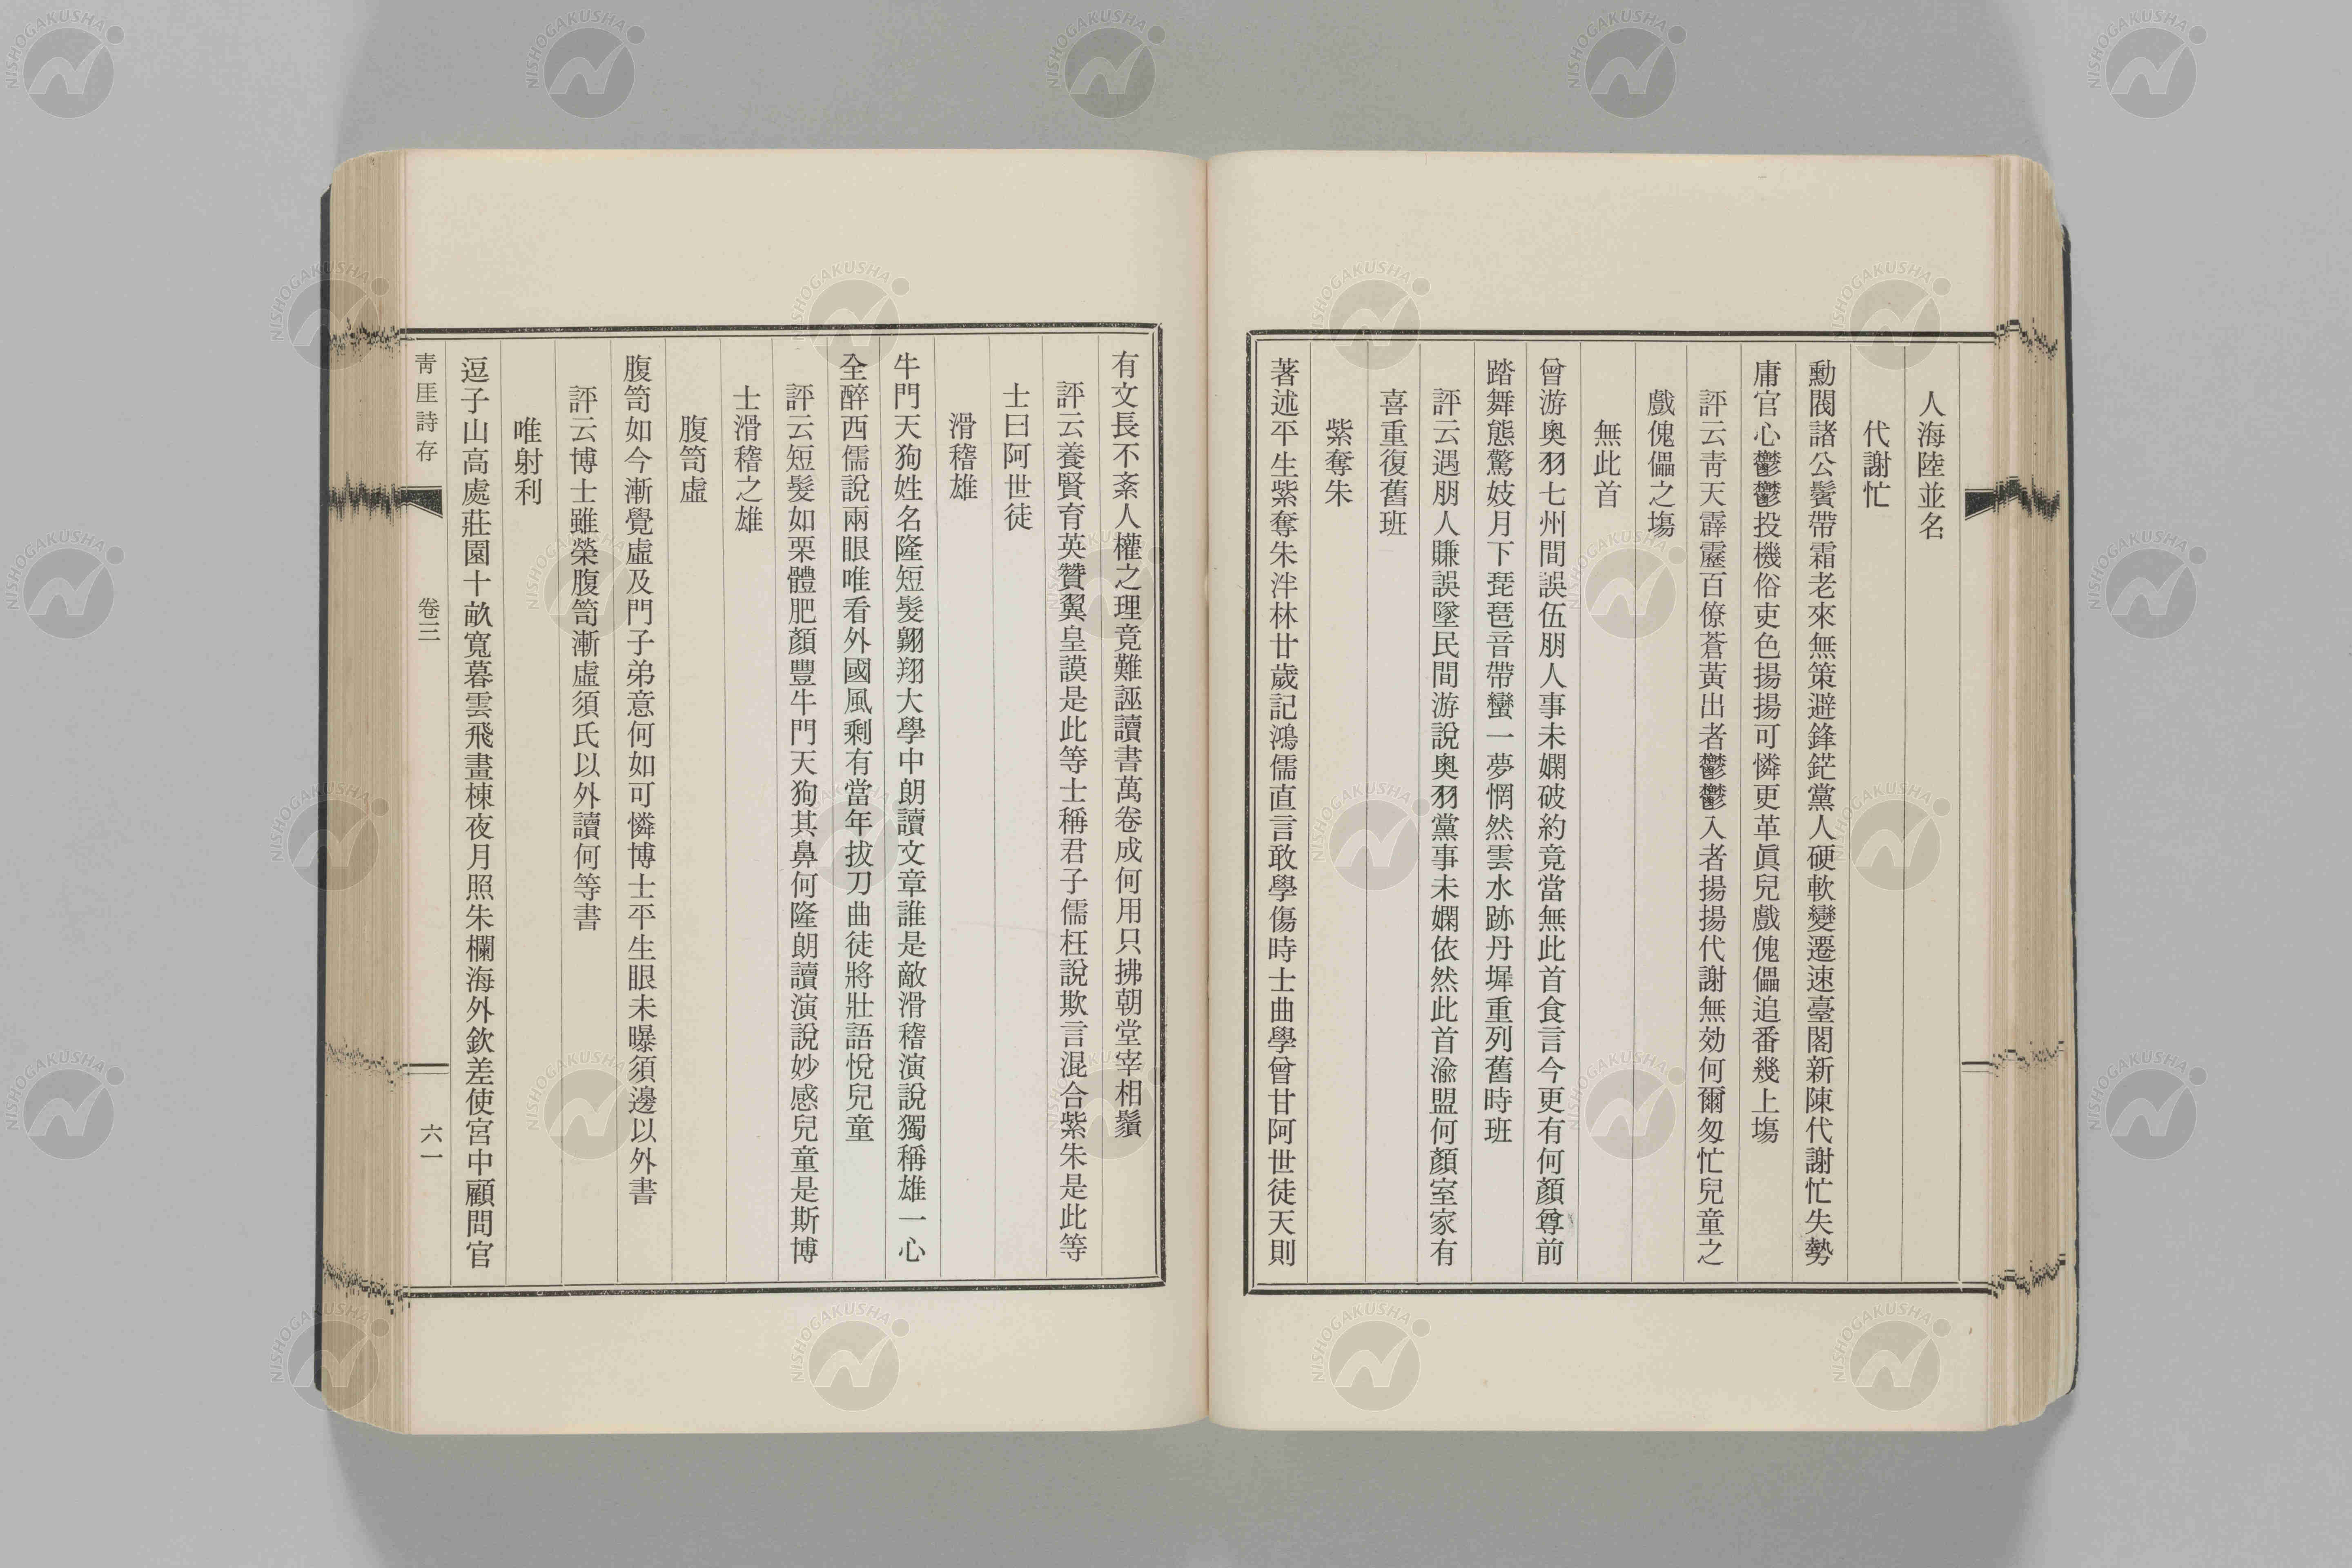 人海陸並名
代謝忙
勳閥諸公鬢帶霜老來無策避鋒鋩黨人硬軟變遷速臺閣新陳代謝忙失勢
庸官心鬱鬱投機俗吏色揚揚可憐更革眞兒戲傀儡追番幾上塲
評云靑天霹靂百僚蒼黃出者鬱鬱入者揚揚代謝無効何爾匆忙兒童之
戲傀儡之塲
無此首
曾游奧羽七州間誤伍朋人事未嫻破約竟當無此首食言今更有何顏尊前
踏舞態驚妓月下琵琶音帶蠻一夢惘然雲水跡丹墀重列舊時班
評云遇朋人賺誤墜民間游說奧羽黨事未嫻依然此首渝盟何顏室家有
喜重復舊班
紫奪朱
著述平生紫奪朱泮林廿歲記鴻儒直言敢學傷時士曲學曾甘阿世徒天則
有文長不紊人權之理竟難誣讀書萬卷成何用只拂朝堂宰相鬚
評云養賢育英贊翼皇謨是此等士稱君子儒枉說欺言混合紫朱是此等
士曰阿世徒
滑稽雄
牛門天狗姓名隆短髮翺翔大學中朗讀文章誰是敵滑稽演說獨稱雄一心
全醉西儒說兩眼唯看外國風剩有當年拔刀曲徒將壯語悅兒童
評云短髮如栗體肥顏豐牛門天狗其鼻何隆朗讀演說妙感兒童是斯博
士滑稽之雄
腹笥虛
腹笥如今漸覺虛及門子弟意何如可憐博士平生眼未曝須邊以外書
評云博士雖榮腹笥漸虛須氏以外讀何等書
唯射利
逗子山高處莊園十畝寬暮雲飛畫棟夜月照朱欄海外欽差使宮中顧問官
靑厓詩存 卷三 六一
NISHOGAKUSHA